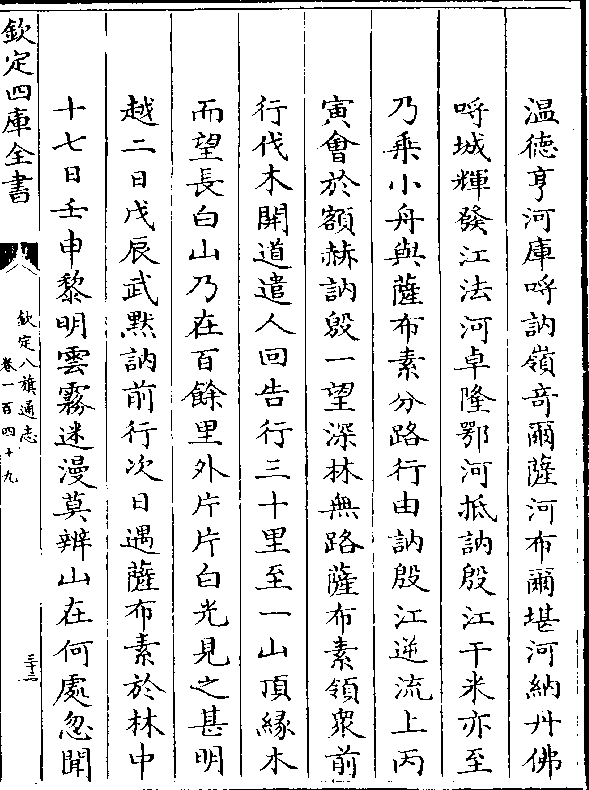 温徳亨河庫哷訥嶺竒爾薩河布爾堪河納丹佛
哷城輝發江法河卓隆鄂河抵訥殷江干米亦至
乃乗小舟與薩布素分路行由訥殷江逆流上丙
寅會於額赫訥殷一望深林無路薩布素領衆前
行伐木開道遣人回告行三十里至一山頂緣木
而望長白山乃在百餘里外片片白光見之甚明
越二日戊辰武默訥前行次日遇薩布素於林中
十七日壬申黎明雲霧迷漫莫辨山在何處忽聞
欽定四庫全書
欽定八旗通志
卷一百四十九
三十三